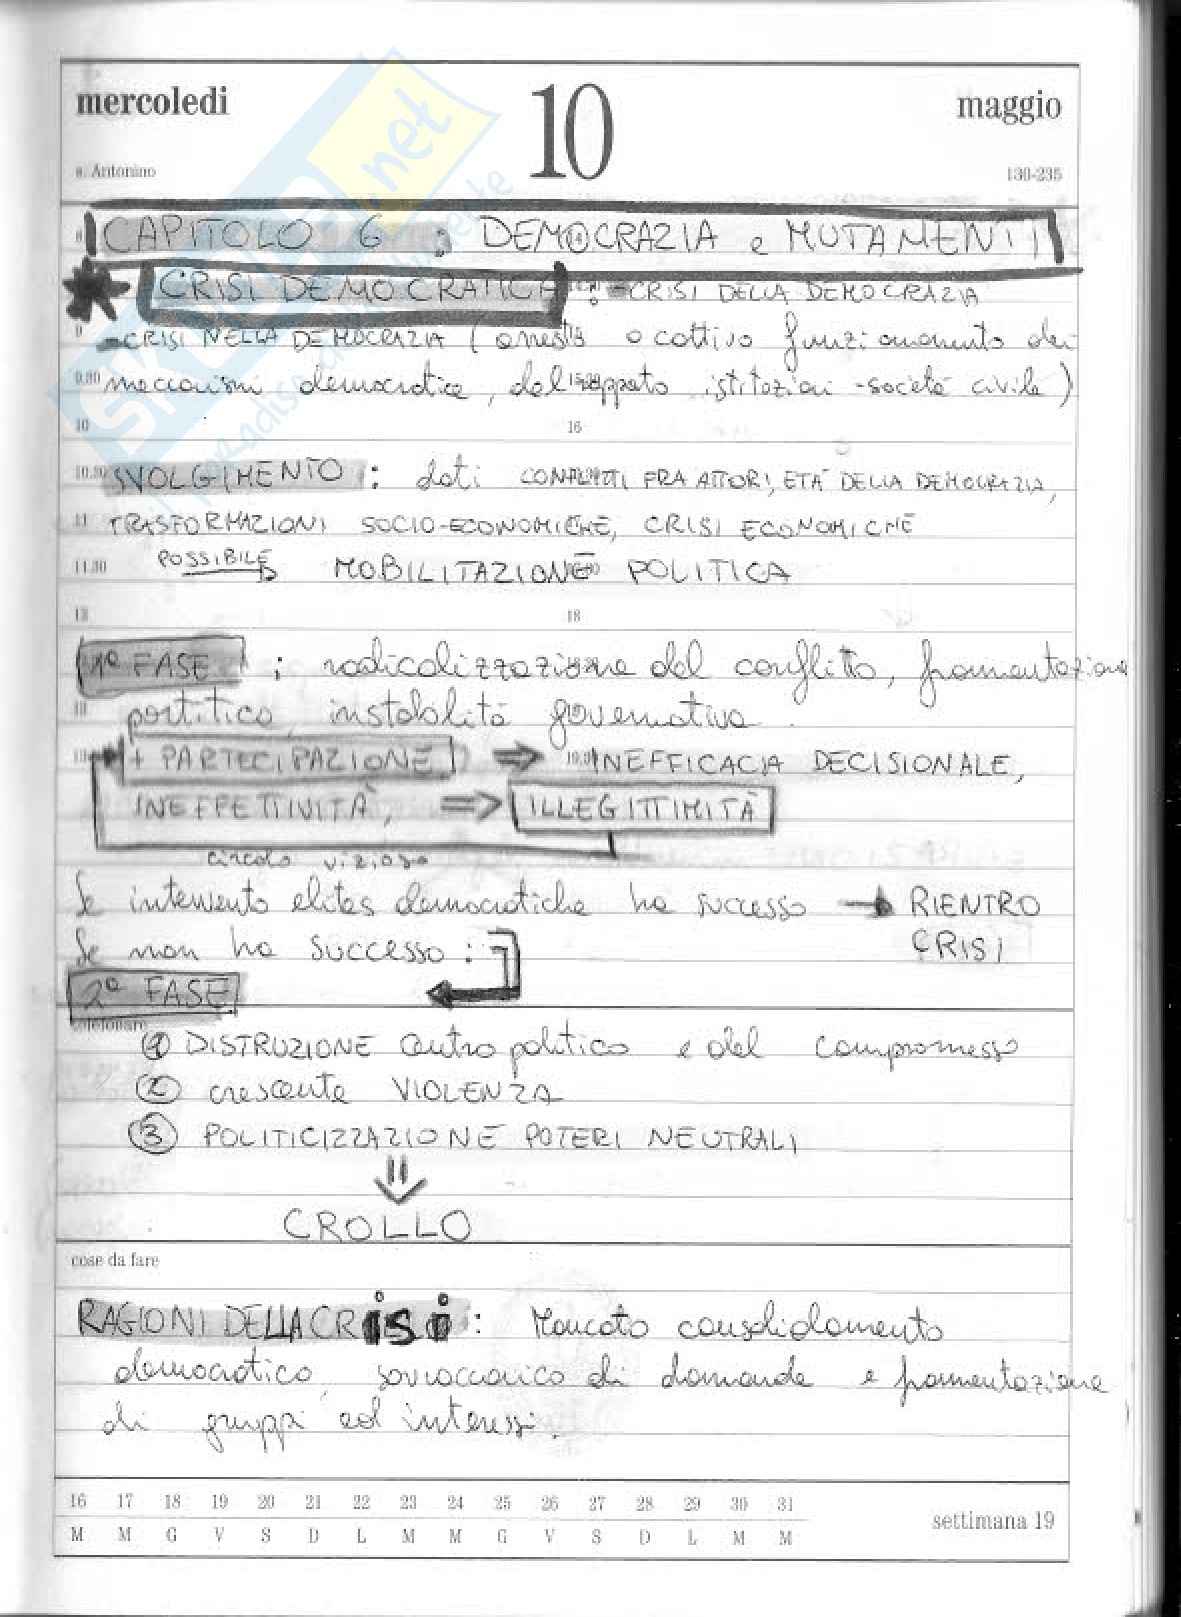 mercoledì 10 maggio
s. Antonino 130-235
CAPITOLO 6 : DEMOCRAZIA e MUTAMENTI
CRISI DEMOCRATICA : - CRISI DELLA DEMOCRAZIA
9 - CRISI NELLA DEMOCRAZIA ( o cattivo funzionamento dei
9.30 meccanismi democratici, del rapporto istituzioni - società civile )
10 16
10.30 SVOLGIMENTO : dati CONFLITTI FRA ATTORI, ETÀ DELLA DEMOCRAZIA,
11 TRASFORMAZIONI SOCIO-ECONOMICHE, CRISI ECONOMICHE
11.30 POSSIBILE MOBILITAZIONE POLITICA
18
1ª FASE : radicalizzazione del conflitto, frammentazione
partitica, instabilità governativa.
+ PARTECIPAZIONE ⇒ INEFFICACIA DECISIONALE,
INEFFETTIVITÀ, ⇒ ILLEGITTIMITÀ
circolo vizioso
Se intervento elites democratiche ha successo → RIENTRO
Se non ha successo : CRISI
2ª FASE
telefonare
1 DISTRUZIONE centro politico e del compromesso
2 crescente VIOLENZA
3 POLITICIZZAZIONE POTERI NEUTRALI
⇓
CROLLO
cose da fare
RAGIONI DELLA CRISI : Mancato consolidamento
democratico, sovraccarico di domande e frammentazione
di gruppi ed interessi.
16 17 18 19 20 21 22 23 24 25 26 27 28 29 30 31
M M G V S D L M M G V S D L M M
settimana 19